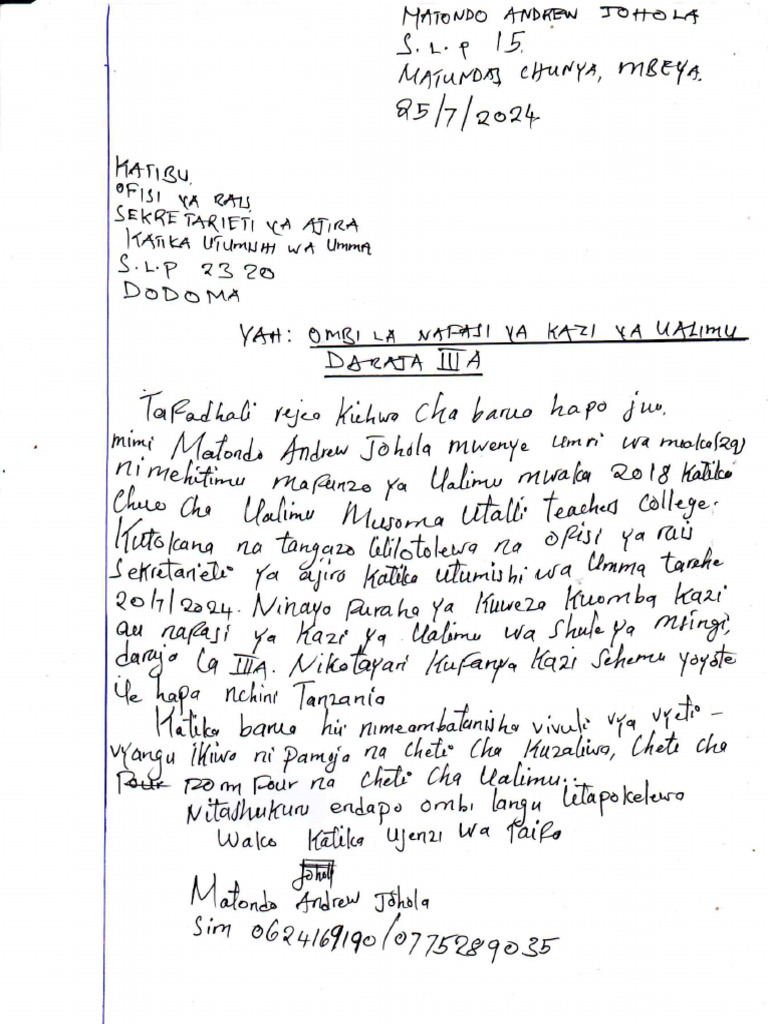 MATONDO ANDREW JOHOLA
S.L.P 15
MATUNDAS CHUNYA, MBEYA.
25/7/2024
KATIBU,
OFISI YA RAIS
SEKRETARIETI YA AJIRA
KATIKA UTUMISHI WA UMMA
S.L.P 2320
DODOMA
YAH: OMBI LA NAFASI YA KAZI YA UALIMU
DARAJA III A
Tafadhali rejea kichwa cha barua hapo juu.
mimi Matondo Andrew Johola mwenye umri wa miaka (29)
nimehitimu mafunzo ya Ualimu mwaka 2018 katika
Chuo Cha Ualimu Musoma Utalii Teachers College.
Kutokana na tangazo lililotolewa na ofisi ya rais
Sekretarieti ya ajira katika utumishi wa Umma tarehe
20/7/2024. Ninayo furaha ya kuweza kuomba kazi
au nafasi ya kazi ya Ualimu wa shule ya msingi,
daraja la IIIA. Nikotayari kufanya kazi sehemu yoyote
ile hapa nchini Tanzania
Katika barua hii nimeambatanisha vivuli vya vyeti -
vyangu ikiwa ni pamoja na cheti cha kuzaliwa, cheti cha
Four form four na cheti cha Ualimu..
Nitashukuru endapo ombi langu litapokelewa
Wako katika ujenzi wa taifa
Joholl
Matondo Andrew Johola
Sim 0624169190/0775289035